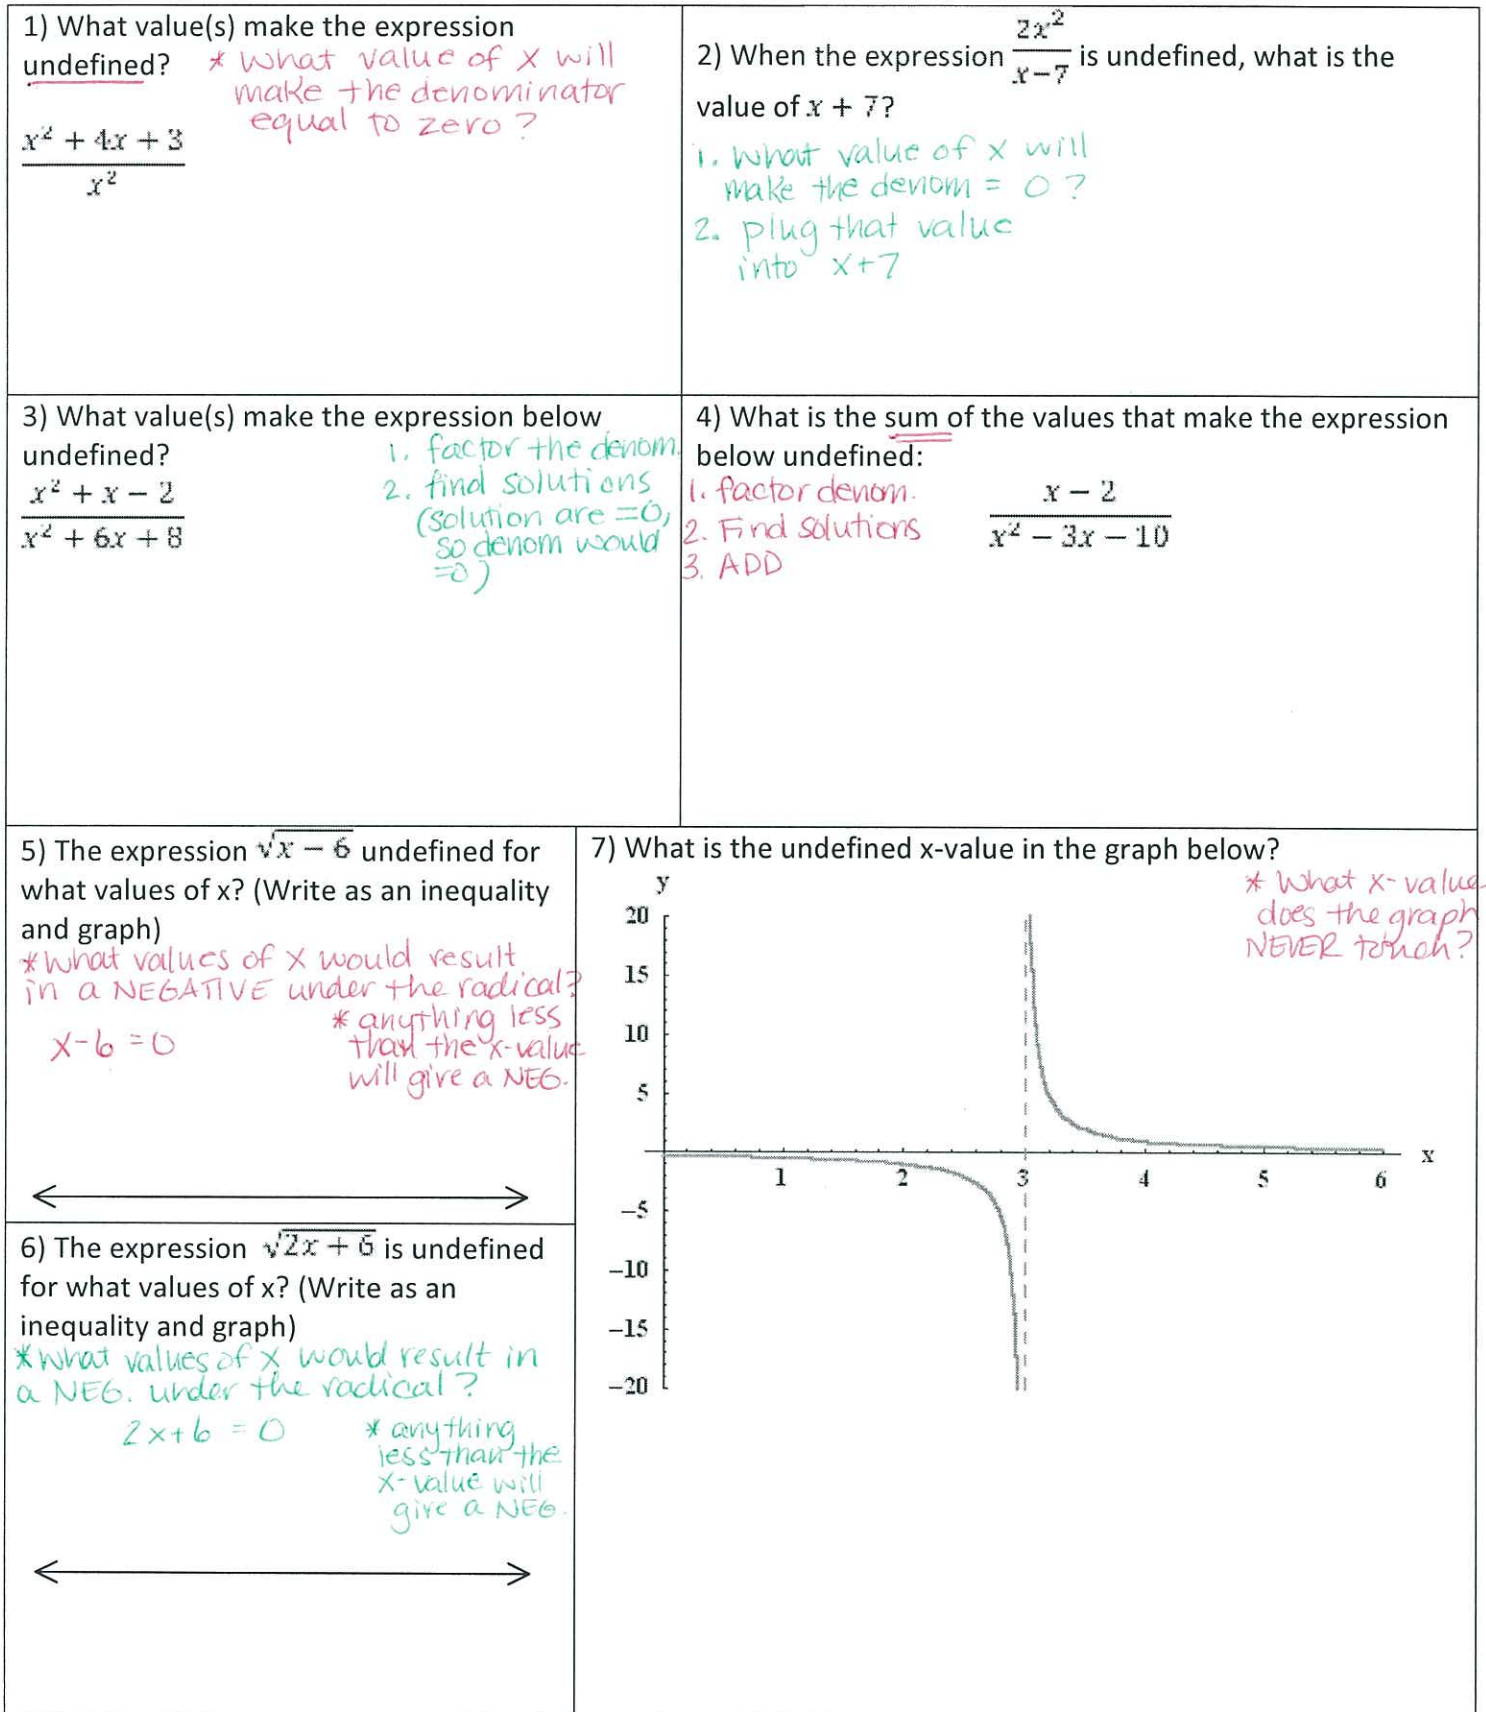 1) What value(s) make the expression
undefined?
* What value of x will
make the denominator
equal to zero?
x² + 4x + 3
x²
2) When the expression 2x²/x−7 is undefined, what is the
value of x + 7?
1. What value of x will
make the denom = 0?
2. plug that value
into x+7
3) What value(s) make the expression below
undefined?
x² + x − 2
x² + 6x + 8
1. factor the denom.
2. find solutions
(solution are =0,
so denom would
=0)
4) What is the sum of the values that make the expression
below undefined:
1. factor denom.
2. Find solutions
3. ADD
x − 2
x² − 3x − 10
5) The expression √x − 6 undefined for
what values of x? (Write as an inequality
and graph)
*What values of x would result
in a NEGATIVE under the radical?
x-6 = 0
* anything less
than the x-value
will give a NEG.
6) The expression √2x + 6 is undefined
for what values of x? (Write as an
inequality and graph)
*What values of x would result in
a NEG. under the radical?
2x+6 = 0
* anything
less than the
x-value will
give a NEG.
7) What is the undefined x-value in the graph below?
* What x-value
does the graph
NEVER touch?
y
20
15
10
5
x
1 2 3 4 5 6
−5
−10
−15
−20